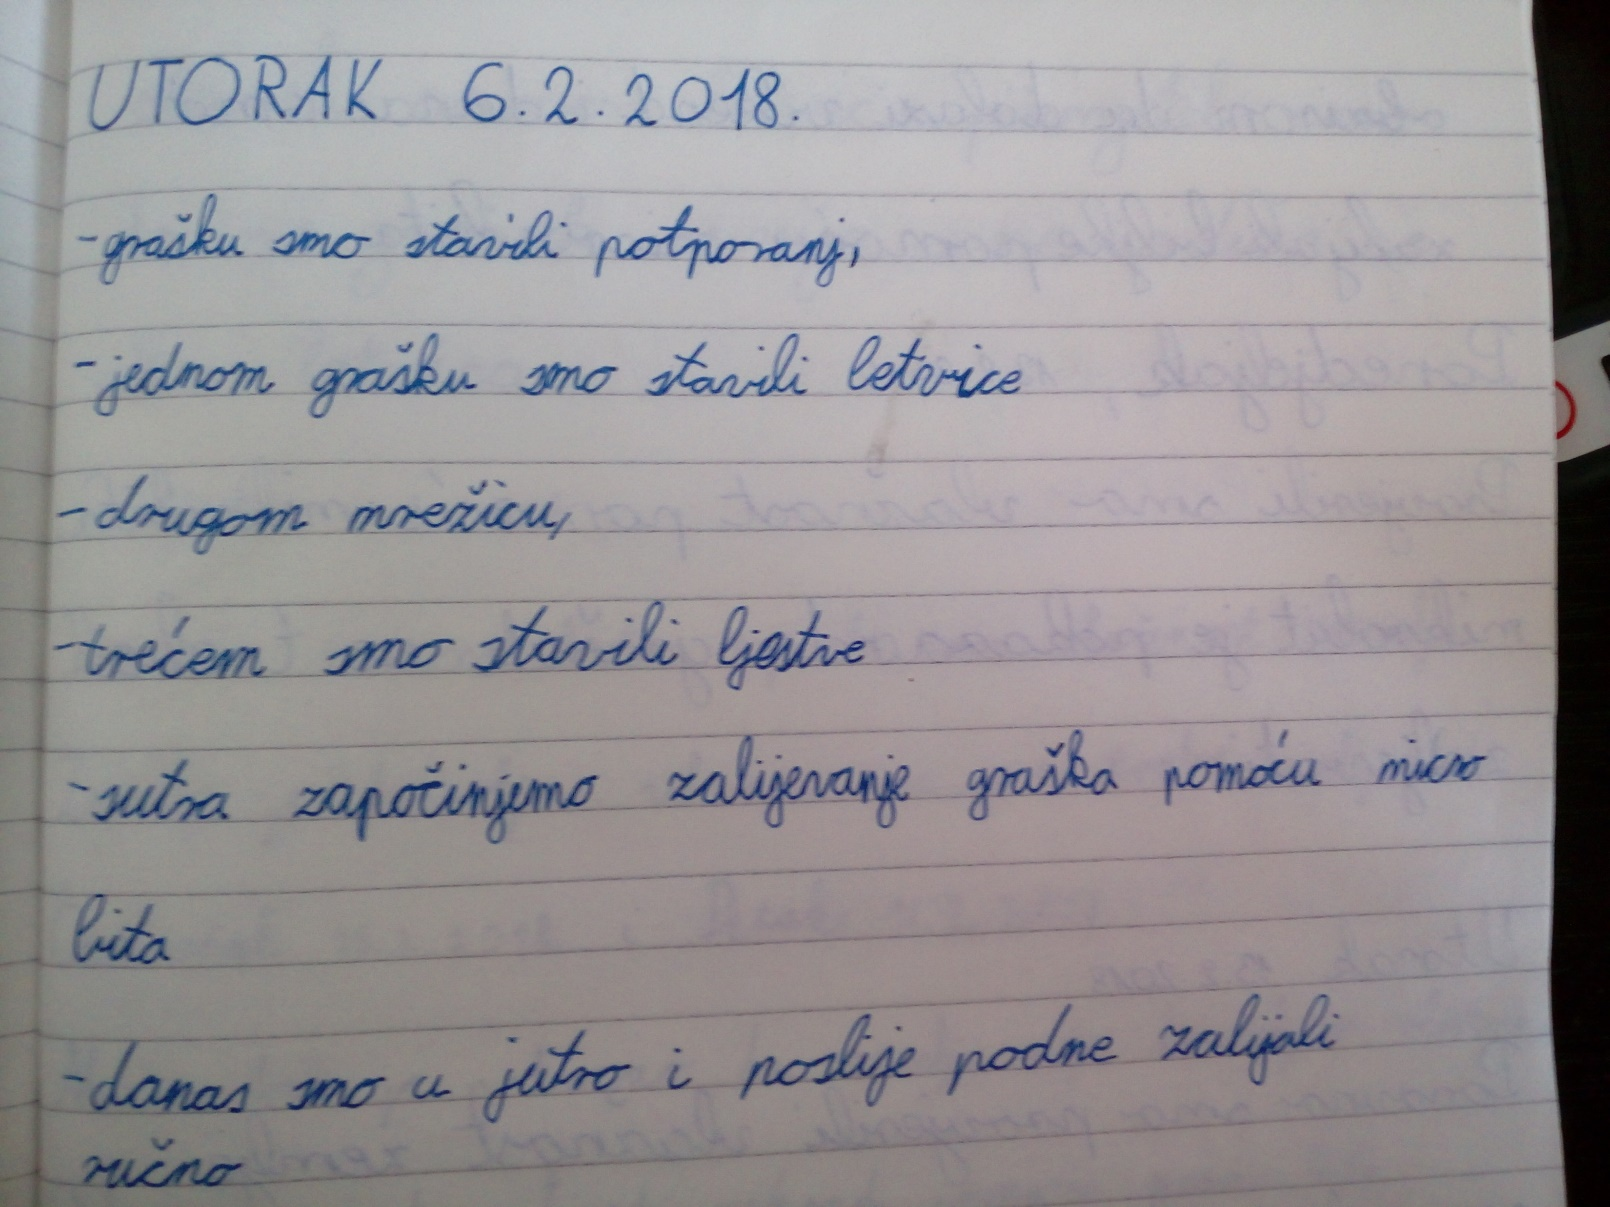 UTORAK 6.2.2018.
-grašku smo stavili potporanj,
-jednom grašku smo stavili letvice
-drugom mrežicu,
-trećem smo stavili ljestve
-sutra započinjemo zalijevanje graška pomoću micro
bita
-danas smo u jutro i poslije podne zalijali
ručno